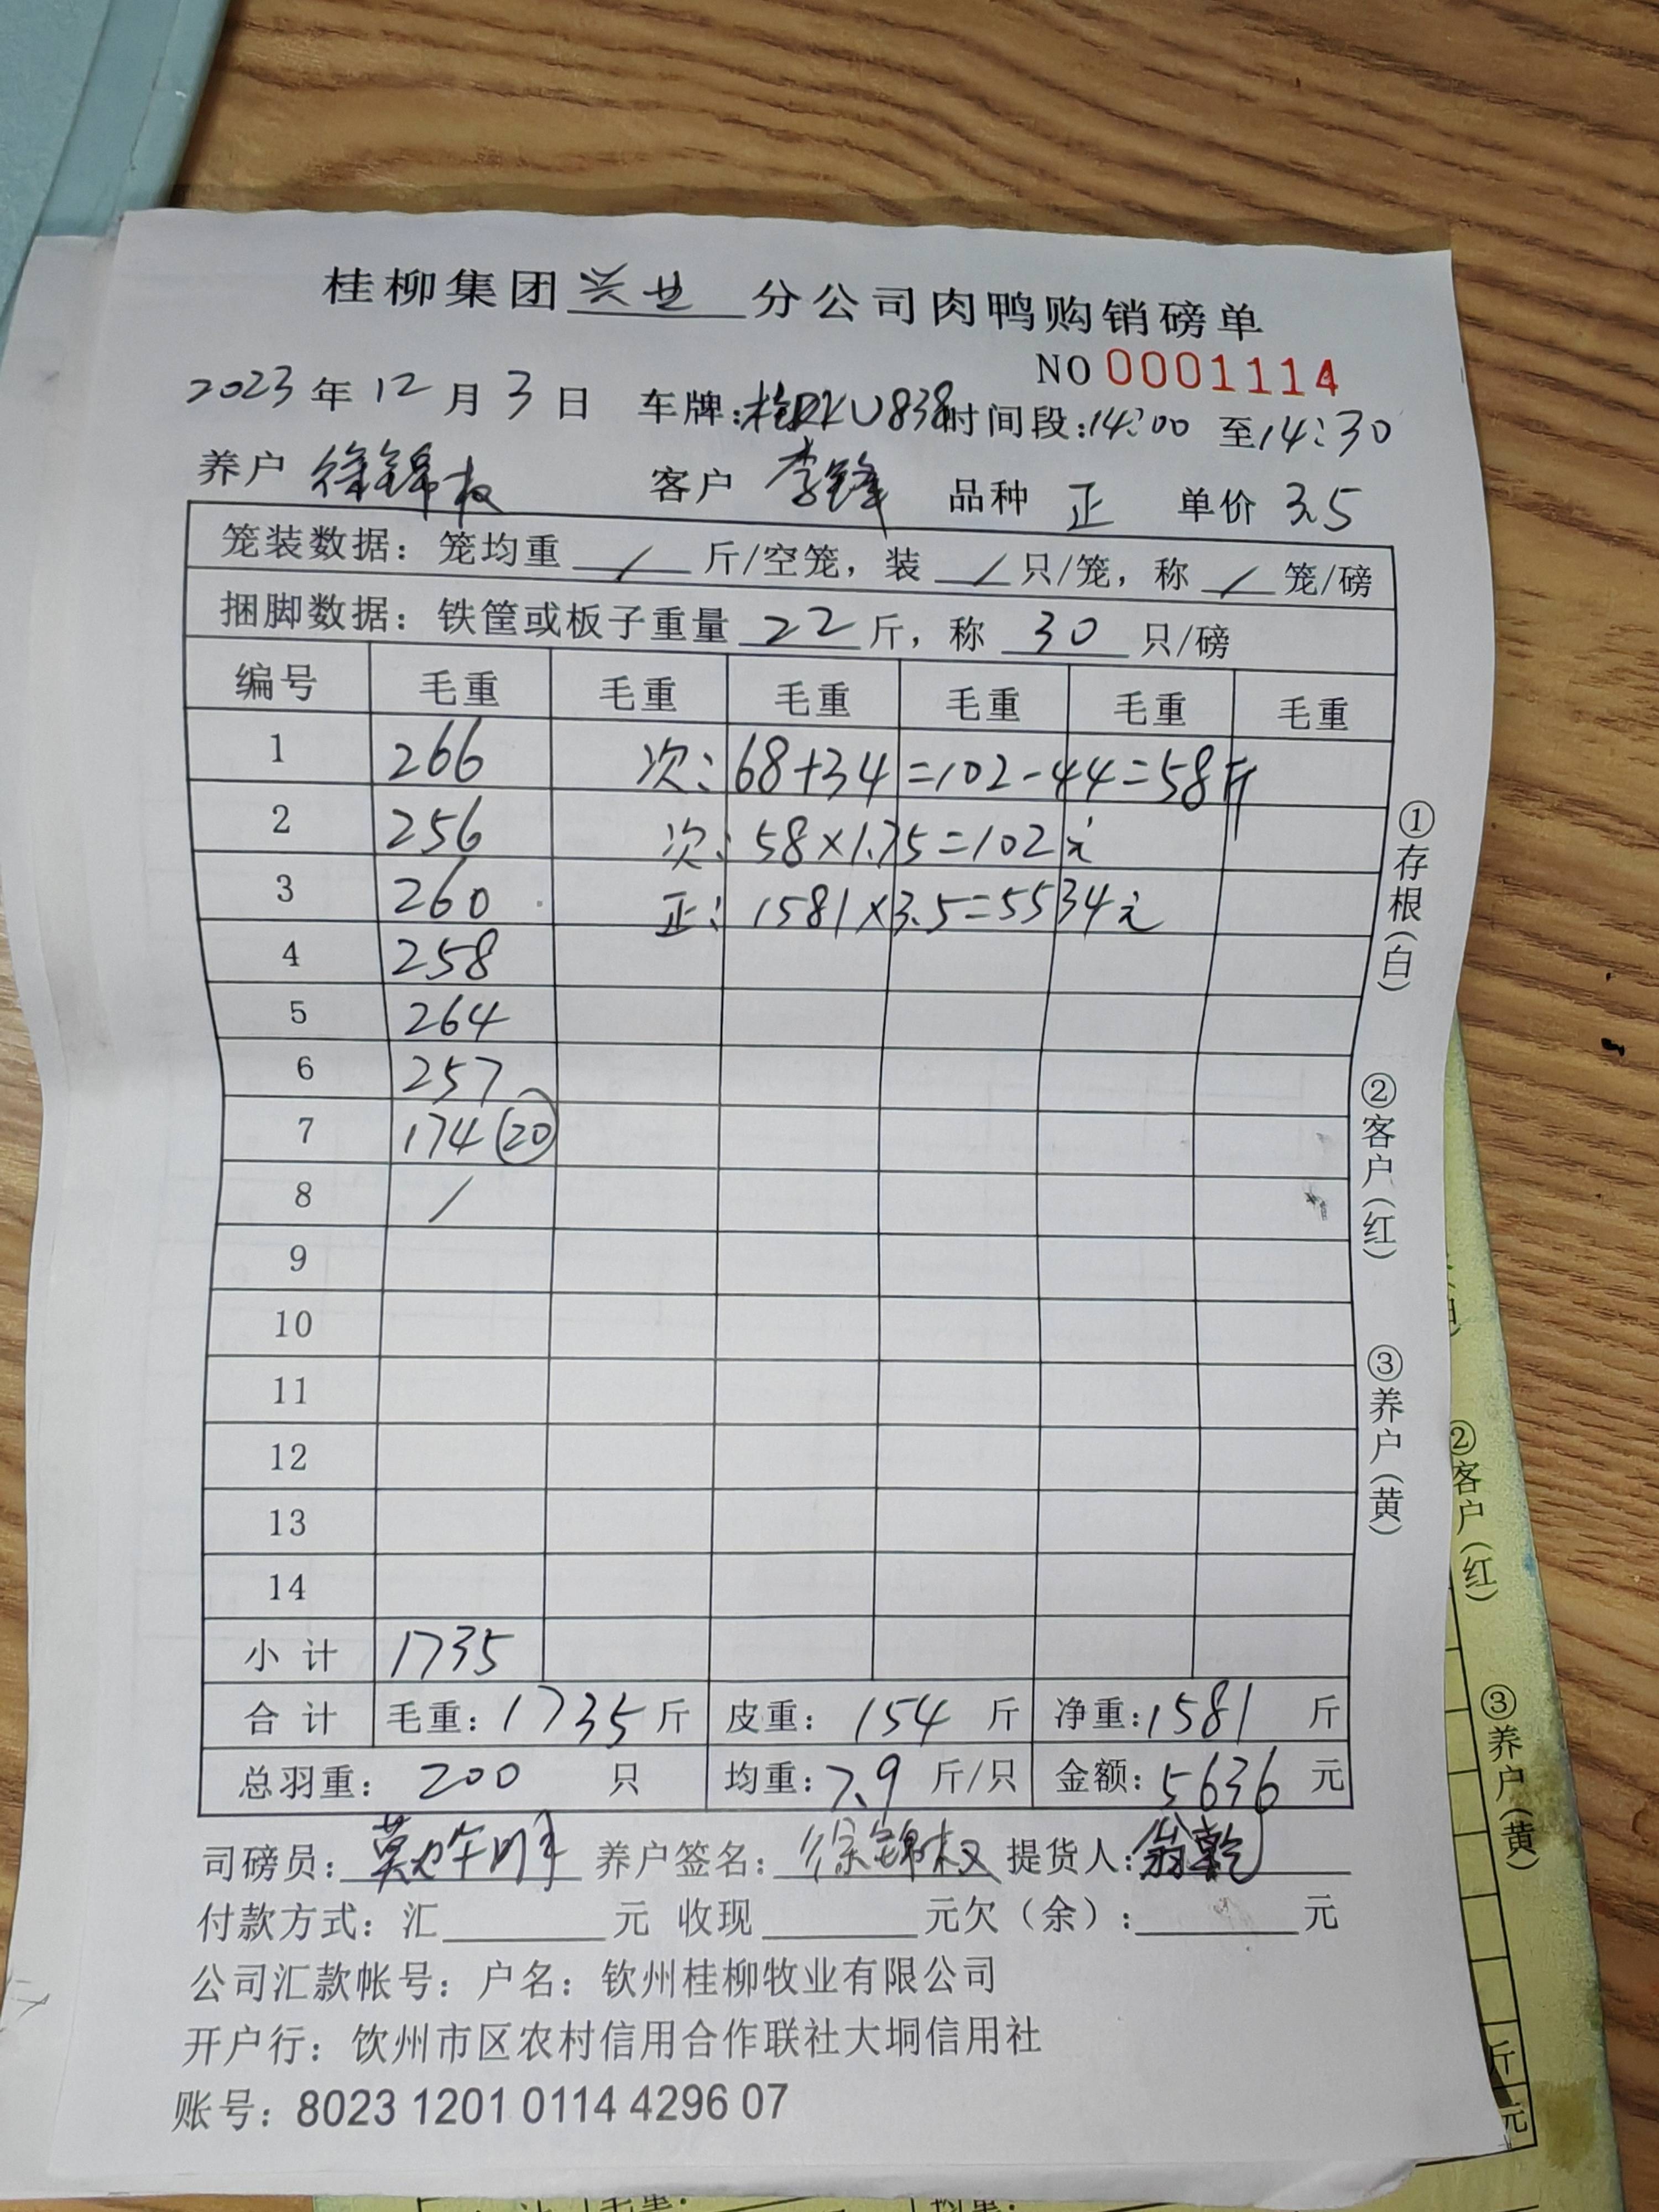 桂柳集团 兴业 分公司肉鸭购销磅单
NO 0001114
2023年12月3日 车牌:桂RKU838 时间段:14:00 至14:30
养户 徐锦权 客户 李锋 品种 正 单价 3.5
笼装数据：笼均重 / 斤/空笼，装 / 只/笼，称 / 笼/磅
捆脚数据：铁筐或板子重量 22 斤，称 30 只/磅
编号 毛重 毛重 毛重 毛重 毛重 毛重
1 266 次:68+34=102-44=58斤
2 256 次:58×1.75=102元
3 260 正:1581×3.5=5534元
4 258
5 264
6 257
7 174 (20)
8 /
9
10
11
12
13
14
小计 1735
合计 毛重:1735斤 皮重:154斤 净重:1581斤
总羽重:200只 均重:7.9斤/只 金额:5636元
司磅员: 养户签名:徐锦权 提货人:
付款方式：汇 元 收现 元欠（余）: 元
公司汇款帐号：户名：钦州桂柳牧业有限公司
开户行：饮州市区农村信用合作联社大垌信用社
账号：8023 1201 0114 4296 07
①存根(白)
②客户(红)
③养户(黄)
②客户(红)
③养户(黄)
斤
元